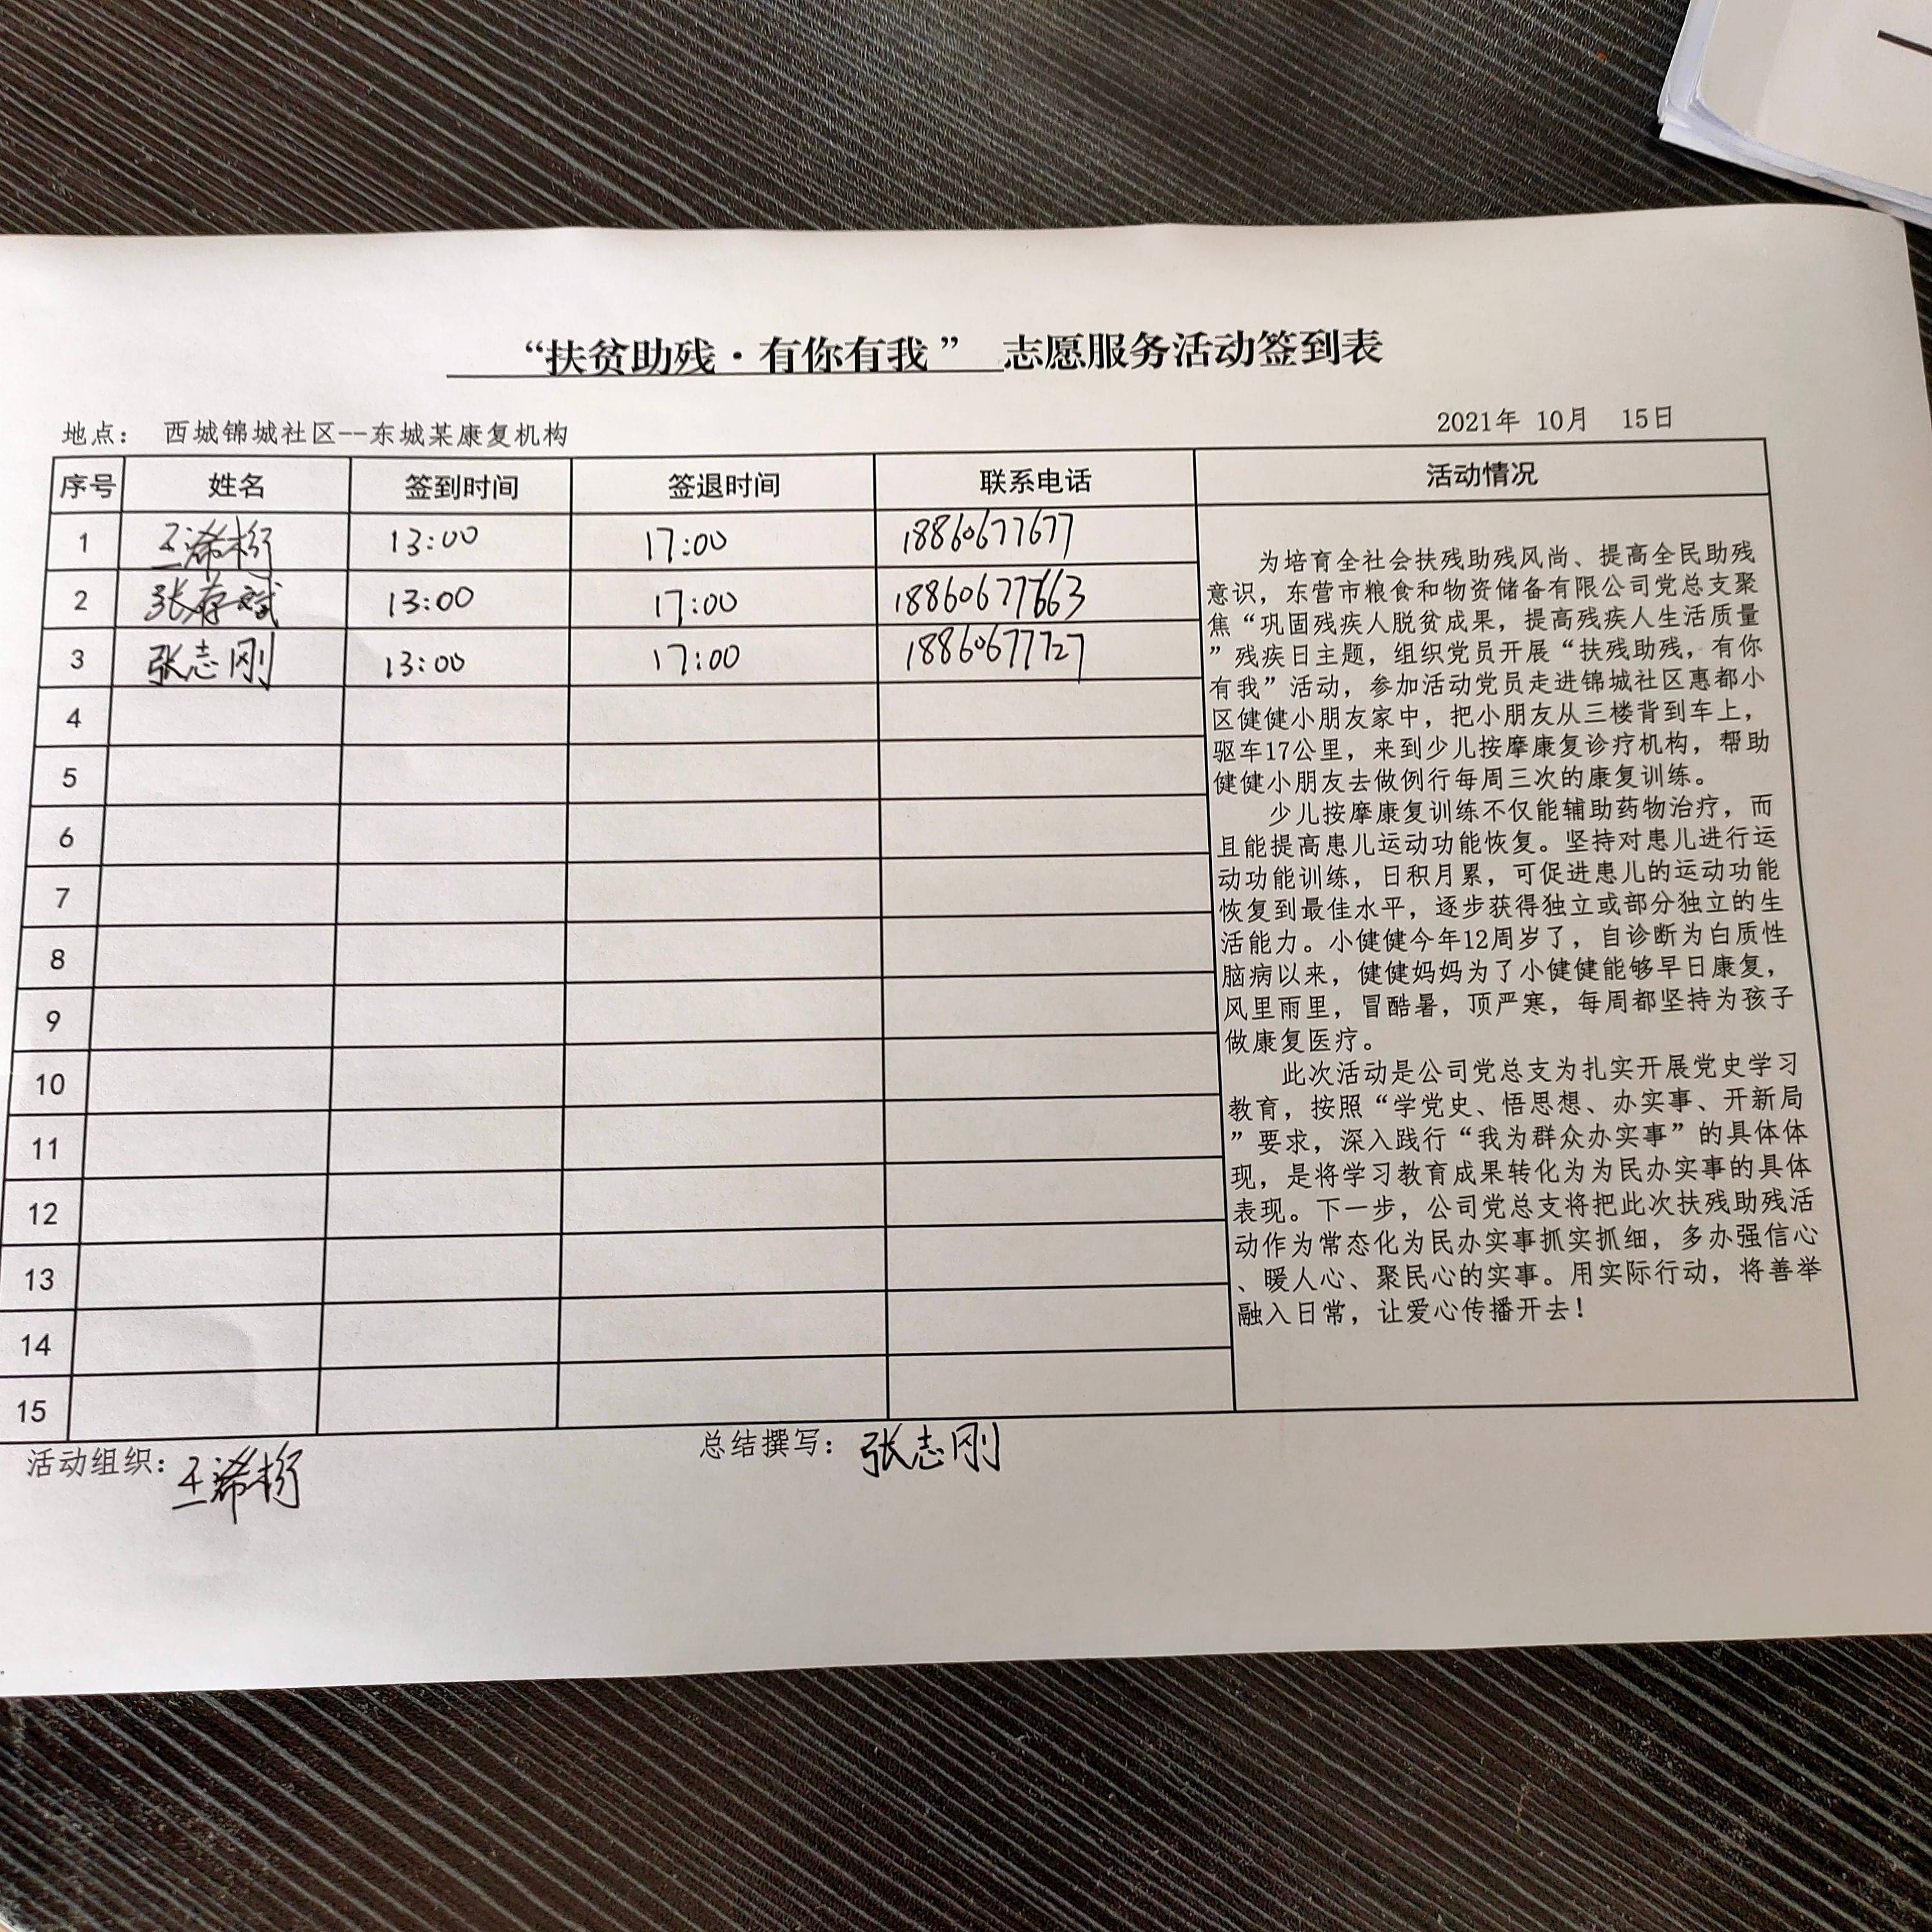 “扶贫助残·有你有我” 志愿服务活动签到表
地点： 西城锦城社区--东城某康复机构
2021年 10月 15日
序号 姓名 签到时间 签退时间 联系电话 活动情况
1 13:00 17:00 18860677677
2 13:00 17:00 18860677663
3 张志刚 13:00 17:00 18860677727
4
5
6
7
8
9
10
11
12
13
14
15
为培育全社会扶残助残风尚、提高全民助残
意识，东营市粮食和物资储备有限公司党总支聚
焦“巩固残疾人脱贫成果，提高残疾人生活质量
”残疾日主题，组织党员开展“扶残助残，有你
有我”活动，参加活动党员走进锦城社区惠都小
区健健小朋友家中，把小朋友从三楼背到车上，
驱车17公里，来到少儿按摩康复诊疗机构，帮助
健健小朋友去做例行每周三次的康复训练。
少儿按摩康复训练不仅能辅助药物治疗，而
且能提高患儿运动功能恢复。坚持对患儿进行运
动功能训练，日积月累，可促进患儿的运动功能
恢复到最佳水平，逐步获得独立或部分独立的生
活能力。小健健今年12周岁了，自诊断为白质性
脑病以来，健健妈妈为了小健健能够早日康复，
风里雨里，冒酷暑，顶严寒，每周都坚持为孩子
做康复医疗。
此次活动是公司党总支为扎实开展党史学习
教育，按照“学党史、悟思想、办实事、开新局
”要求，深入践行“我为群众办实事”的具体体
现，是将学习教育成果转化为为民办实事的具体
表现。下一步，公司党总支将把此次扶残助残活
动作为常态化为民办实事抓实抓细，多办强信心
、暖人心、聚民心的实事。用实际行动，将善举
融入日常，让爱心传播开去！
活动组织：
总结撰写：张志刚